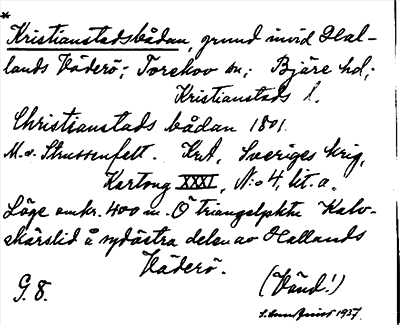 *
Kristianstadsbådan, grund invid Hal-
lands Väderö; Torekov sn; Bjäre hd;
Kristianstads l.
Christianstads bådan 1801.
M. v. Strussenfelt. KrA, Sveriges krig,
Kartong XXXI, N:o 4, lit. a.
Läge omkr. 400 m. O triangelpkte Kalv-
skärslid å sydöstra delen av Hallands
Väderö.
G. 8. (Vänd!)
1937.